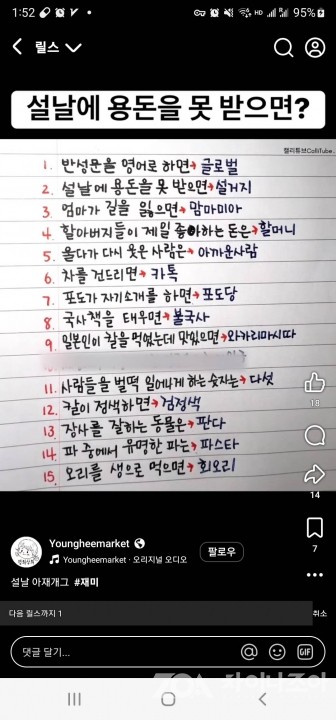 1:52
HD
95%
릴스
설날에 용돈을 못 받으면?
캘리튜브CalliTube
1. 반성문을 영어로 하면→글로벌
2. 설날에 용돈을 못 받으면→설거지
3. 엄마가 길을 잃으면→맘마미아
4. 할아버지들이 제일 좋아하는 돈은→할머니
5. 울다가 다시 웃은 사람은→아까운사람
6. 차를 건드리면→카톡
7. 포도가 자기소개를 하면→포도당
8. 국사책을 태우면→불국사
9. 일본인이 칼을 먹었는데 맛있으면→와카리마시따
11. 사람들을 벌떡 일어나게 하는 숫자는→다섯
12. 칼이 정색하면→검정색
13. 장사를 잘하는 동물은→판다
14. 파 중에서 유명한 파는→파스타
15. 오리를 생으로 먹으면→회오리
18
14
7
Youngheemarket
Youngheemarket · 오리지널 오디오
팔로우
설날 아재개그 #재미
다음 릴스까지 1
취소
댓글 달기...
GIF